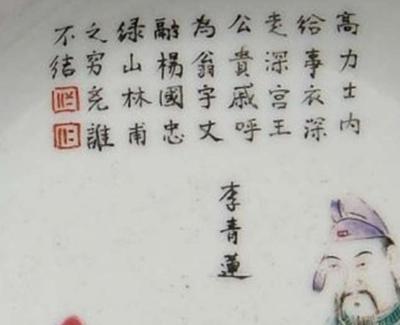 高力士内
给事衣深
走深宫王
公貴戚呼
為翁字丈
融楊國忠
緑山林甫
之穷尧誰
不结
李青蓮